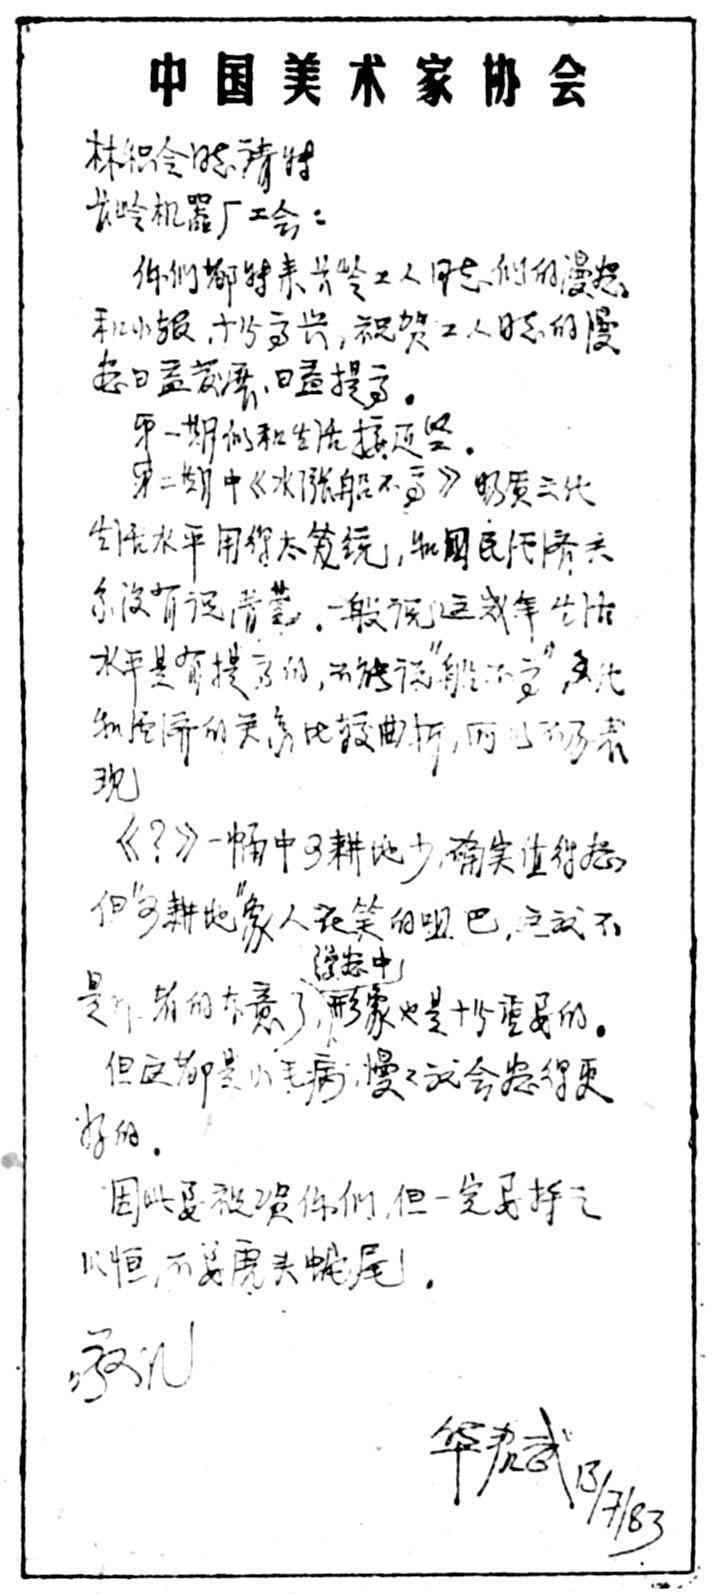 中国美术家协会
林积会同志请转
长岭机器厂工会：
你们都转来长岭工人同志们的漫画
和小报，十分高兴，祝贺工人同志的漫
画日益发展，日益提高。
第一期们和生活接近些。
第二期中《水涨船不高》物质文化
生活水平用得太笼统，和国民经济关
系没有说清楚。一般说这几年生活
水平是有提高的，不能说"船不高"，文化
和经济的关系比较曲折，所以不易表
现
《？》一幅中可耕地少，确实值得画，
但"可耕地"象人在笑的咀巴，这就不
漫画中
是作者的本意了，形象也是十分重要的。
但这都是小毛病，慢々就会画得更
好的。
因此要祝贺你们，但一定要持之
以恒，不要虎头蛇尾。
敬礼
华君武 13/7/83